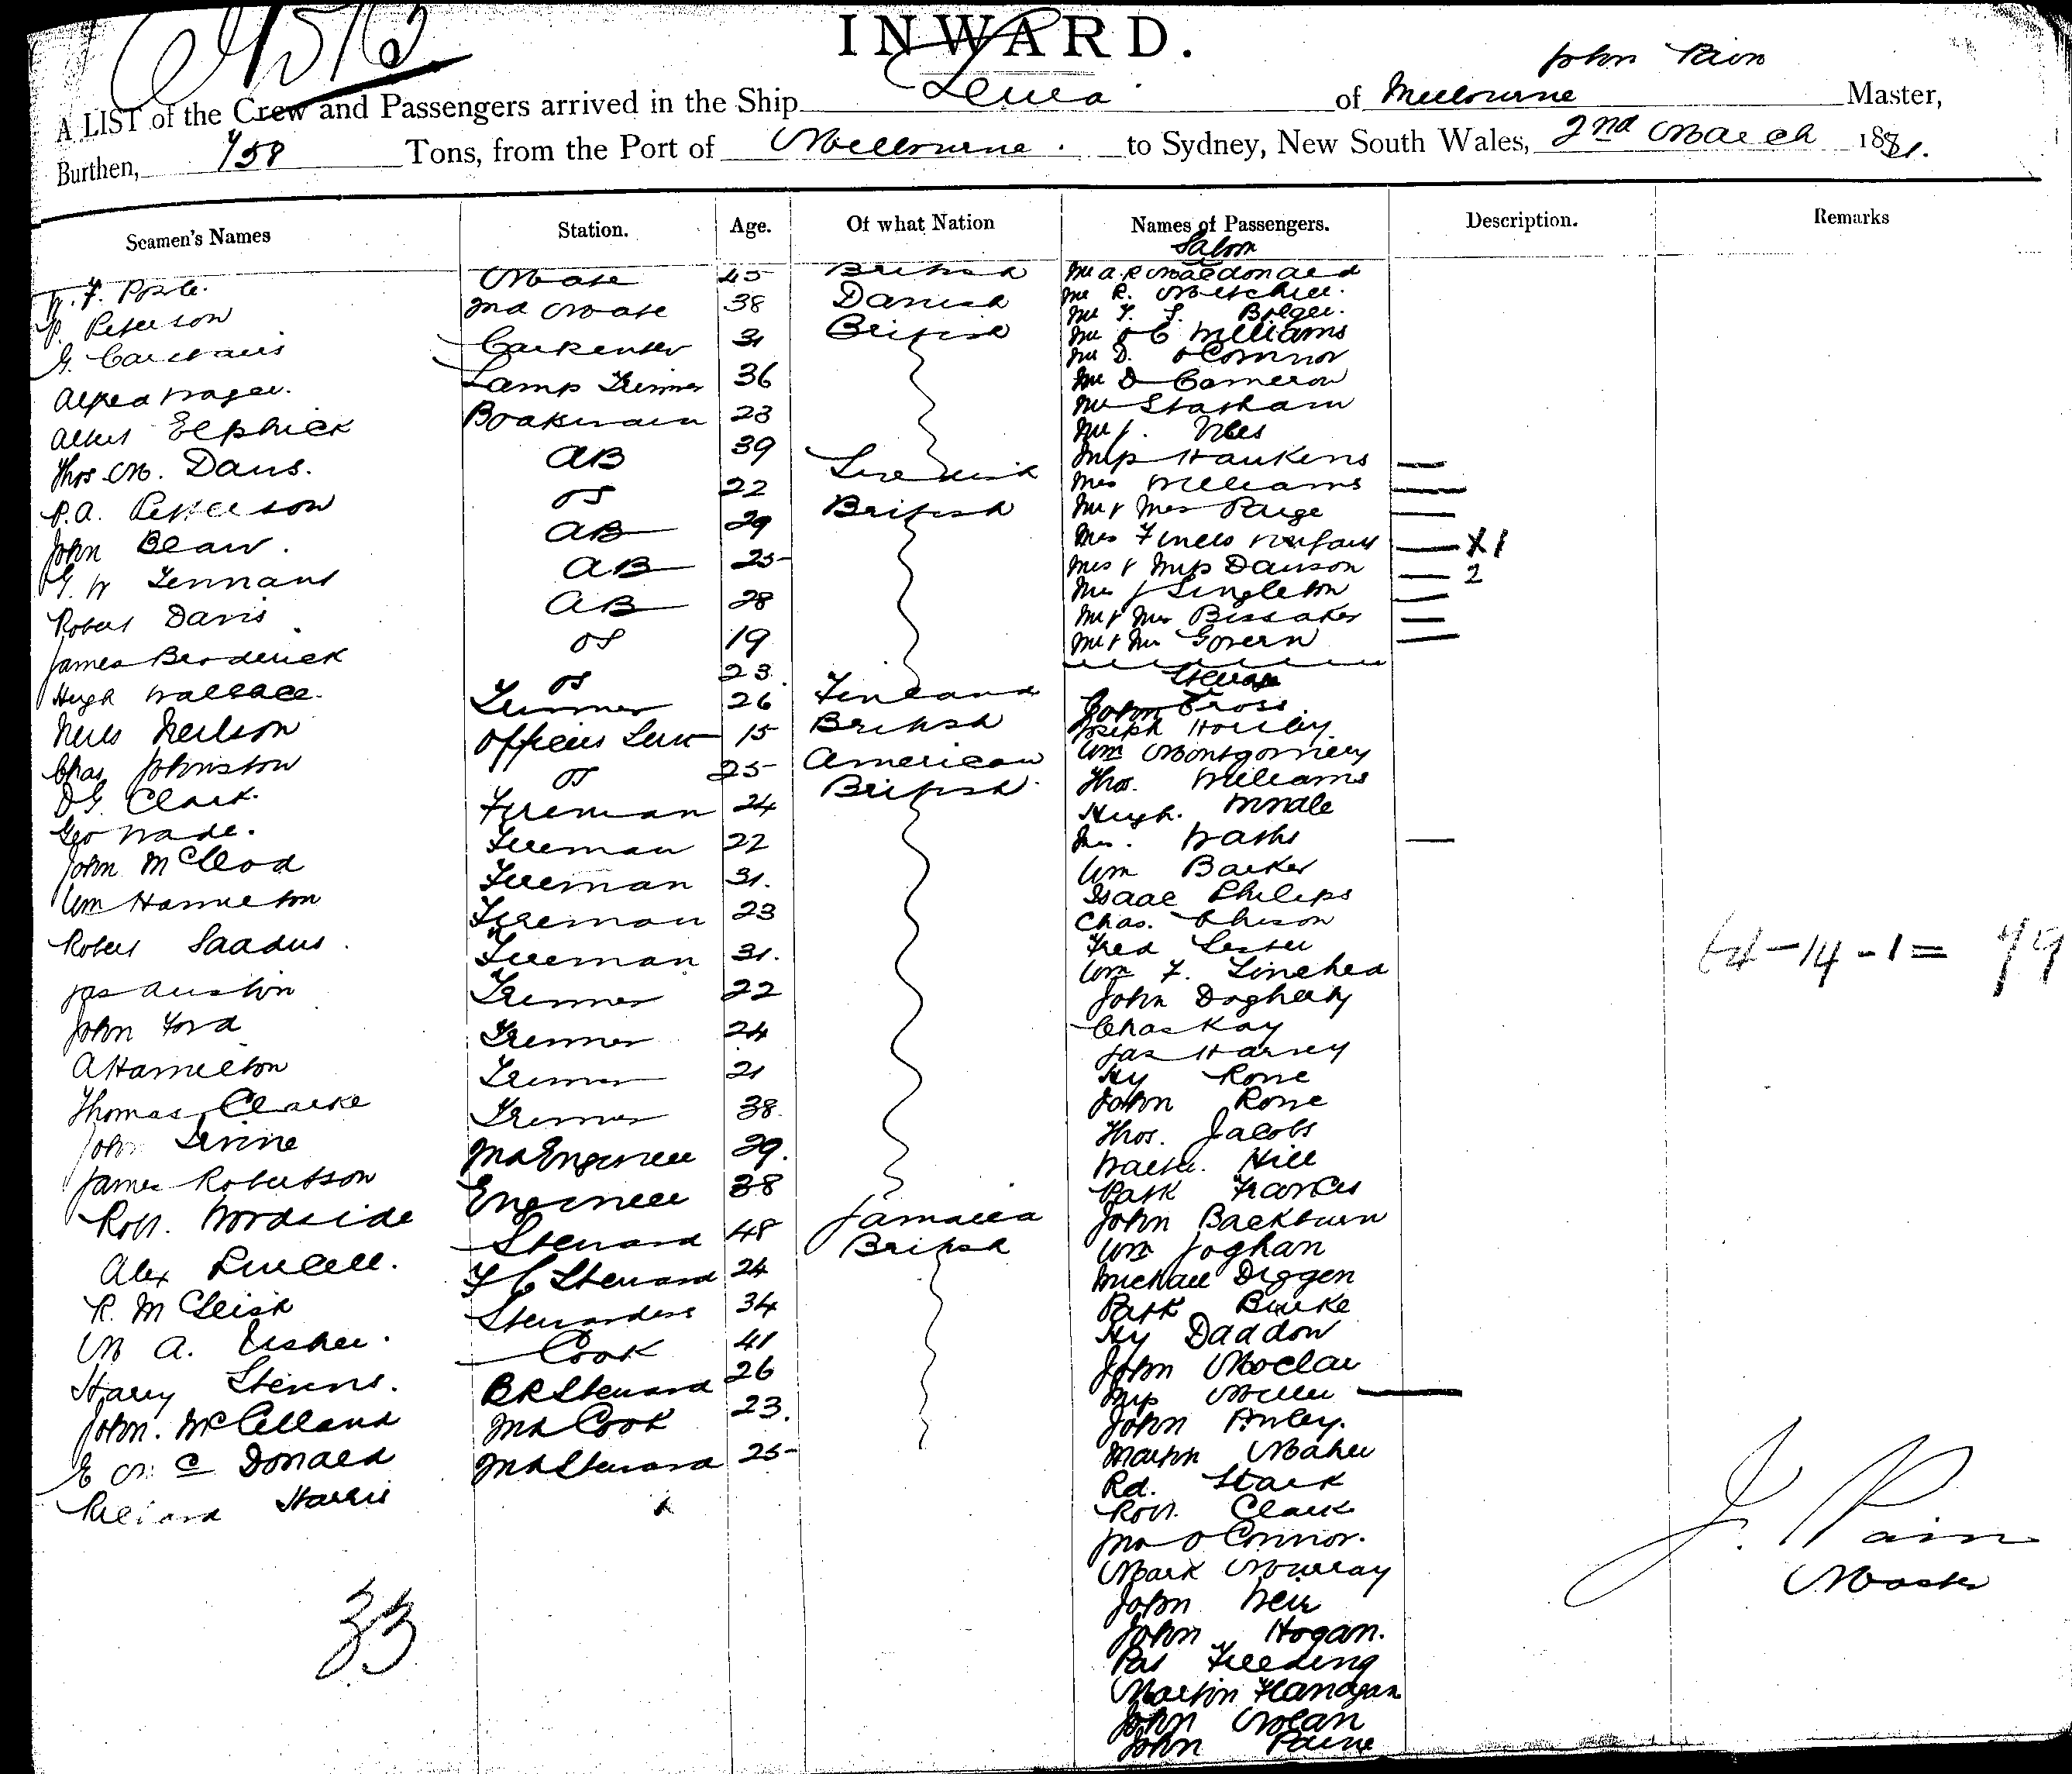 INWARD.
John Pain
A LIST of the Crew and Passengers arrived in the Ship of Melbourne Master,
Burthen, 758 Tons, from the Port of Melbourne. to Sydney, New South Wales, 2nd March 1881.
Seamen's Names Station. Age. Of what Nation Names of Passengers. Description. Remarks
Saloon
Mate 45 British Mr A R Macdonald
P. Peterson 2nd Mate 38 Danish Mr R. Mitchell.
Mr T. S. Bolger.
Carpenter 31 British Mr & C Williams
Mr D. O'Connor
Lamp Trimmer 36 Mr D Cameron
Albert Elphick Boatswain 23 Mr Statham
Mr J. Iles
Thos. M. Davis. AB 39 Miss Hawkins
P.A. Petterson OS 22 Swedish Mrs Williams
John Bean. AB 29 British Mr & Mrs Paige
G. W Tennant AB 25 Mrs infant X 1
Robert Davis AB 28 Mrs & Miss Dawson 2
Mrs J Singleton
James Broderick OS 19 Mr & Mrs Bissaker
Mr & Mrs Govern
Hugh Wallace. OS 23. Steerage
Neils Neilson Trimmer 26 Finland John Cross.
Chas Johnston Officers Serv 15 British Joseph Horiley
D G Clark. OS 25 American Wm Montgomery
Geo Wade. Fireman 24 British. Thos. Williams
Hugh.
John McCleod Fireman 22 Watts
Wm Hamilton Fireman 31. Wm Barker
Isaac Philips
Robert Fireman 23 Chas.
Fred Lester
Jas Austin Fireman 31. Wm F. Linehea
John Ford Trimmer 22 John Dogherty
A Hamilton Trimmer 24 Chas Kay
Jas Harvey
Thomas Clarke Trimmer 21 Hy Rowe
John Rowe
John Devine Trimmer 38. Thos. Jacobs
James Robertson 2nd Engineer 29. Walter. Hill
Robt. Woodside Engineer 38 Patk Francis
Alex Steward 48 Jamaica John Backburn
R. McLeish F C Steward 24 British Wm Joghan
Michael Diggen
M A. Fisher. Stewardess 34 Patk Burke
Harry Stevens. Cook 41 Hy Daddow
John. McClelland B R Steward 26 John
Miss Miller
E Mc Donald 2nd Cook 23. John Anley.
Richard Harris 2nd Steward 25 Martin Maher
Rd. Stark
Robt. Clark
Jno O'Connor.
Mark Mowray
John Weir
John Hogan.
Pat
Martin Flanagan
John Nolan
John Paine
64-14-1= 79
J. Pain
Master
33